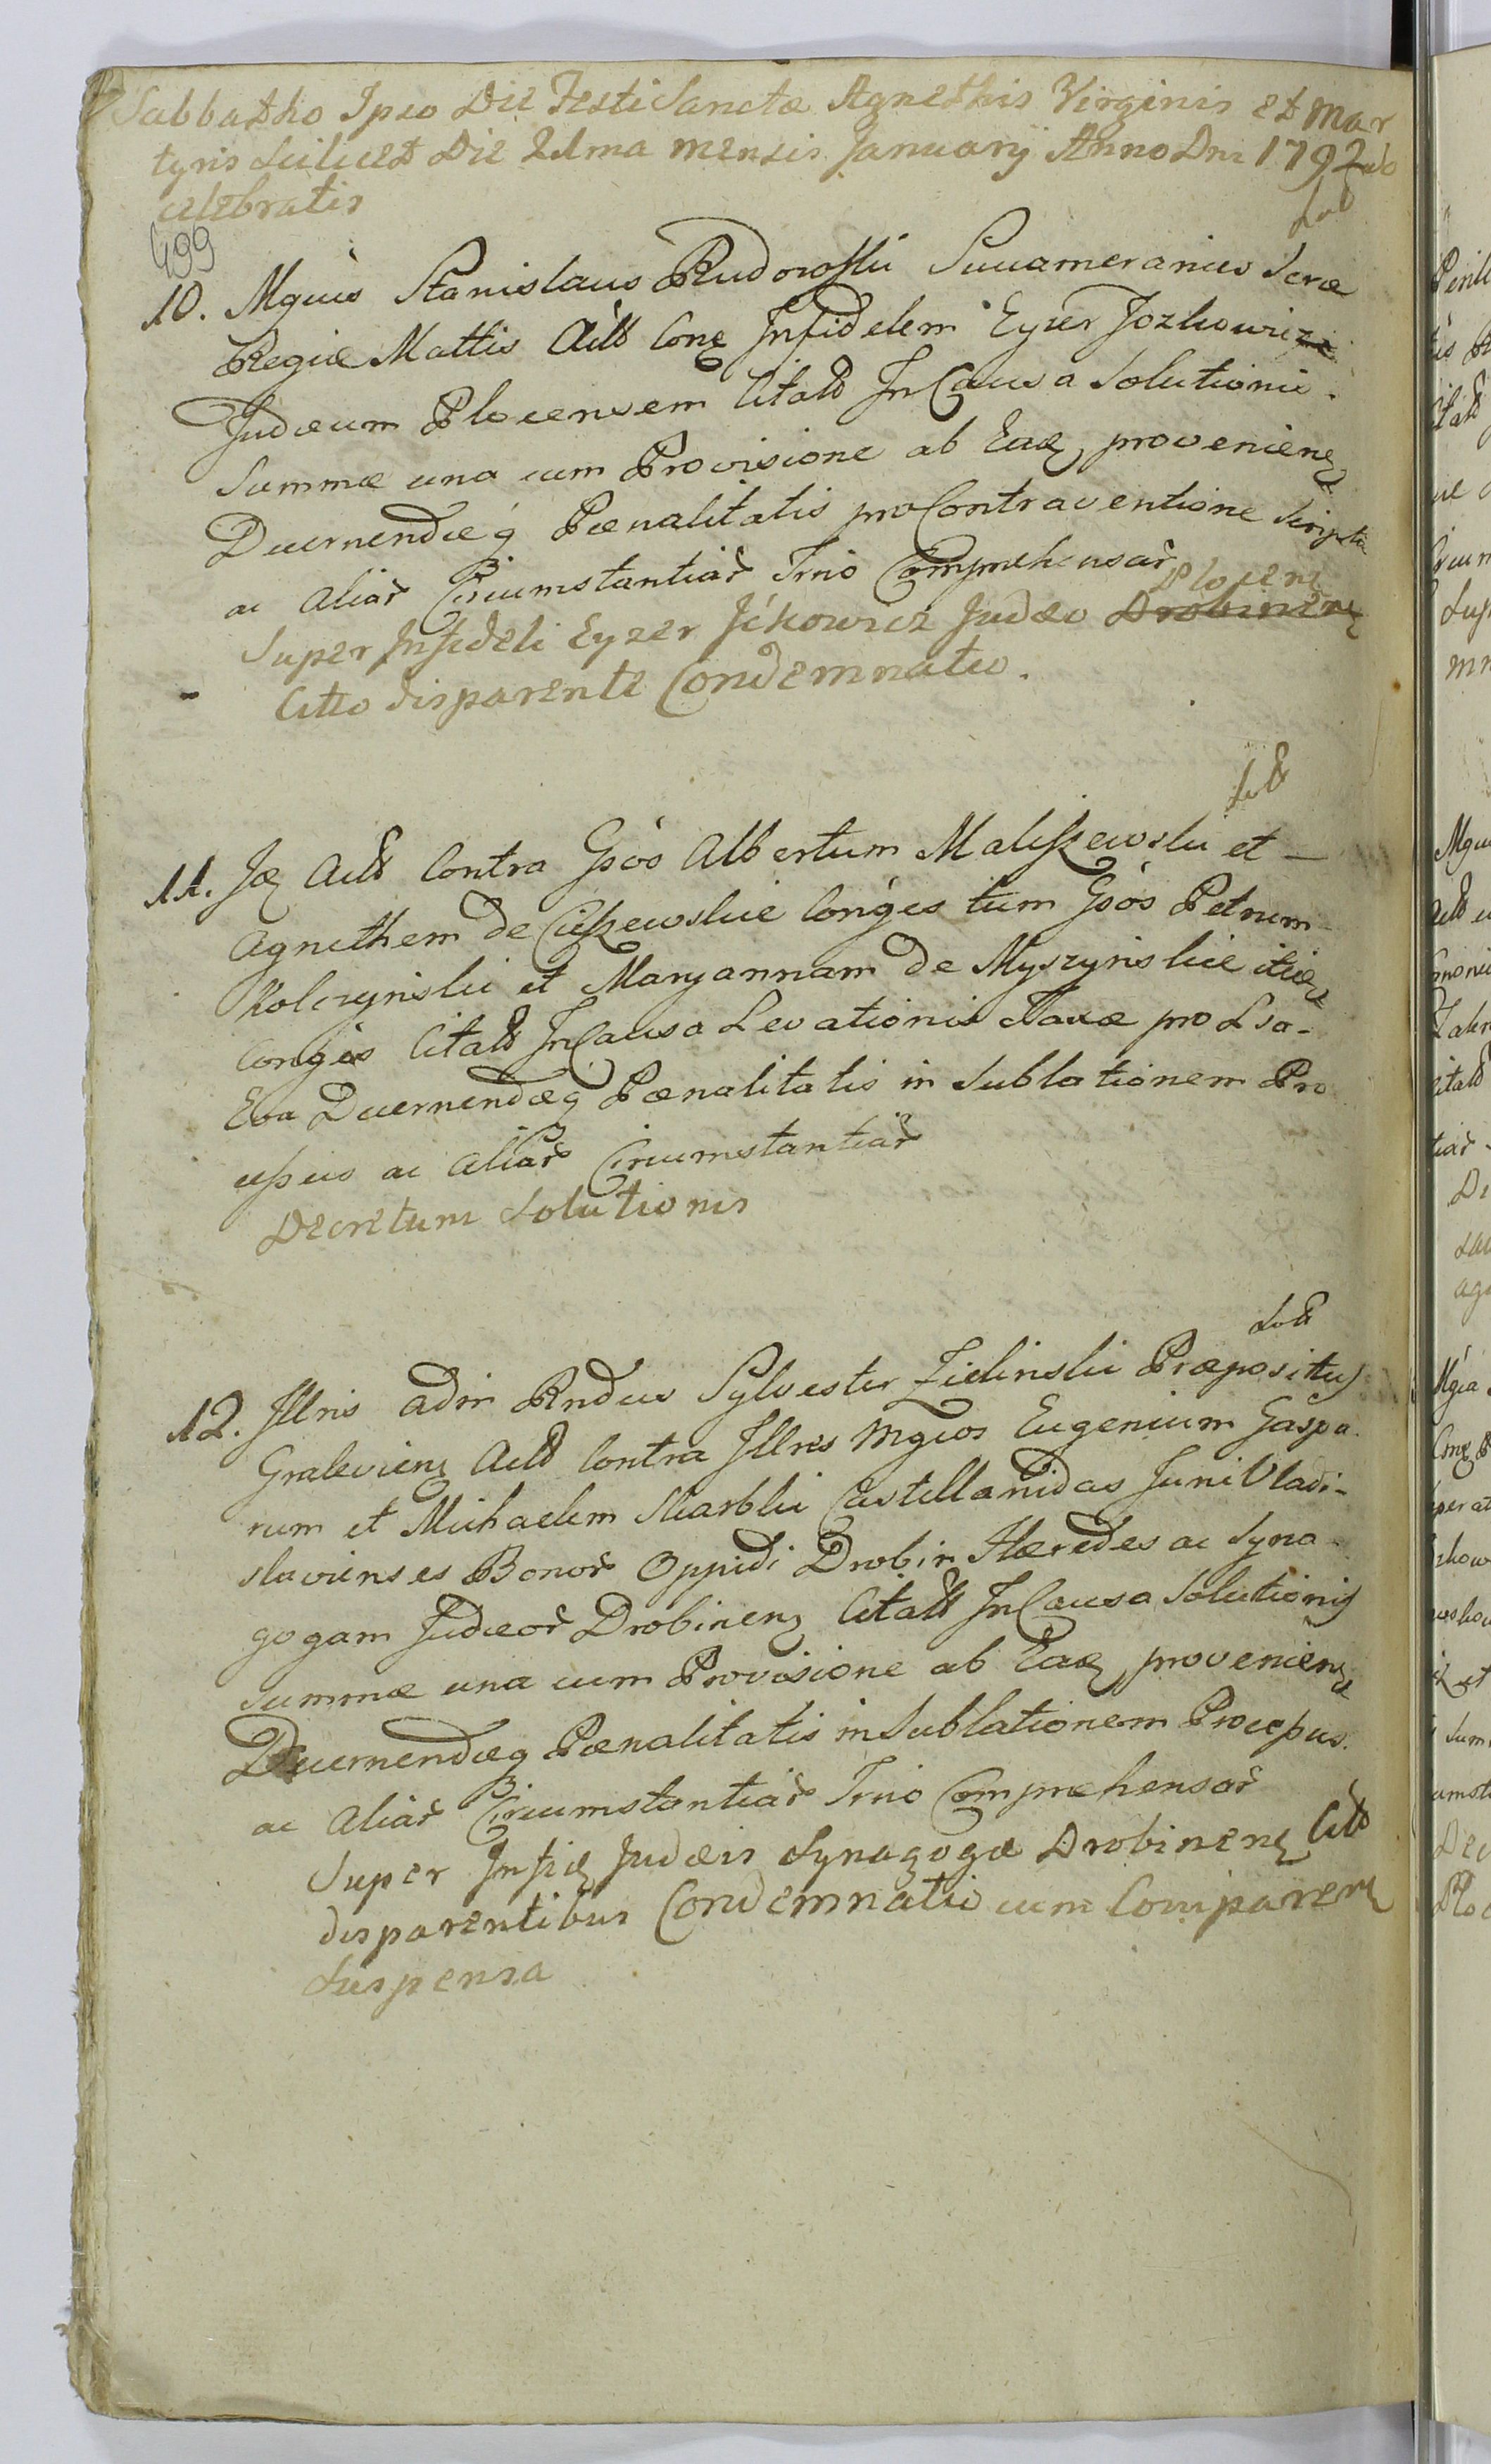 Sabbatho Ipso Die Festi Sanctæ Agnethis Virginis et Mar
tyris scilicet Die 21ma mensis Januarij Anno Dni 1792do
celebratis
499
Sol
10. Mgcus Stanislaus Rudowski Succameranius Scræ
Regiæ Mattis Actt Cone Infidelem Eyzer Jozkowicz
Judæum Plocensem Citatt In Causa Solutionis
Summæ una cum Provisione ab Eade proveniene
Decernendæq Pœnalitatis pro Contraventione Scripti
ac Aliar Circumstantiar Trmo Comprehensar
Plocen
Super Infideli Eyzer Jckowicz Judæo Drobinen
Citto disparente Condemnatio.
Solt
11. Ide Actt Contra Gsos Albertum Maliszewski et
Agnethem de Ciszewskie Conges tum Gsos Petrum
Kolczynski et Maryannam de Myszynskie itide
Conges Citatt In Causa Levationis Taxæ pro
Eva Decernendæq Pœnalitatis in Sublationem Pro
cessus ac Aliar Circumstantiar
Decretum Solutionis
Solt
12. Illris Adm Rndus Sylvester Zielinski Præpositus
Gralevien Actt Contra Illres Mgcos Eugenium Gaspa
rum et Michaelem Skarbki Castellanidas Juni Vladi-
slavienses Bonor Oppidi Drobin Hæredes ac Syna
gogam Judæor Drobinen Citatt In Causa Solutionis
Summæ una cum Provisione ab Eade proveniene
Decernendæq Pœnalitatis in Sublationem Processus
ac Aliar Circumstantiar Trmo Comprehensar
Super Infide Judæis Synagogæ Drobinen Citt
disparentibus Condemnatio cum Comparen
Suspensa